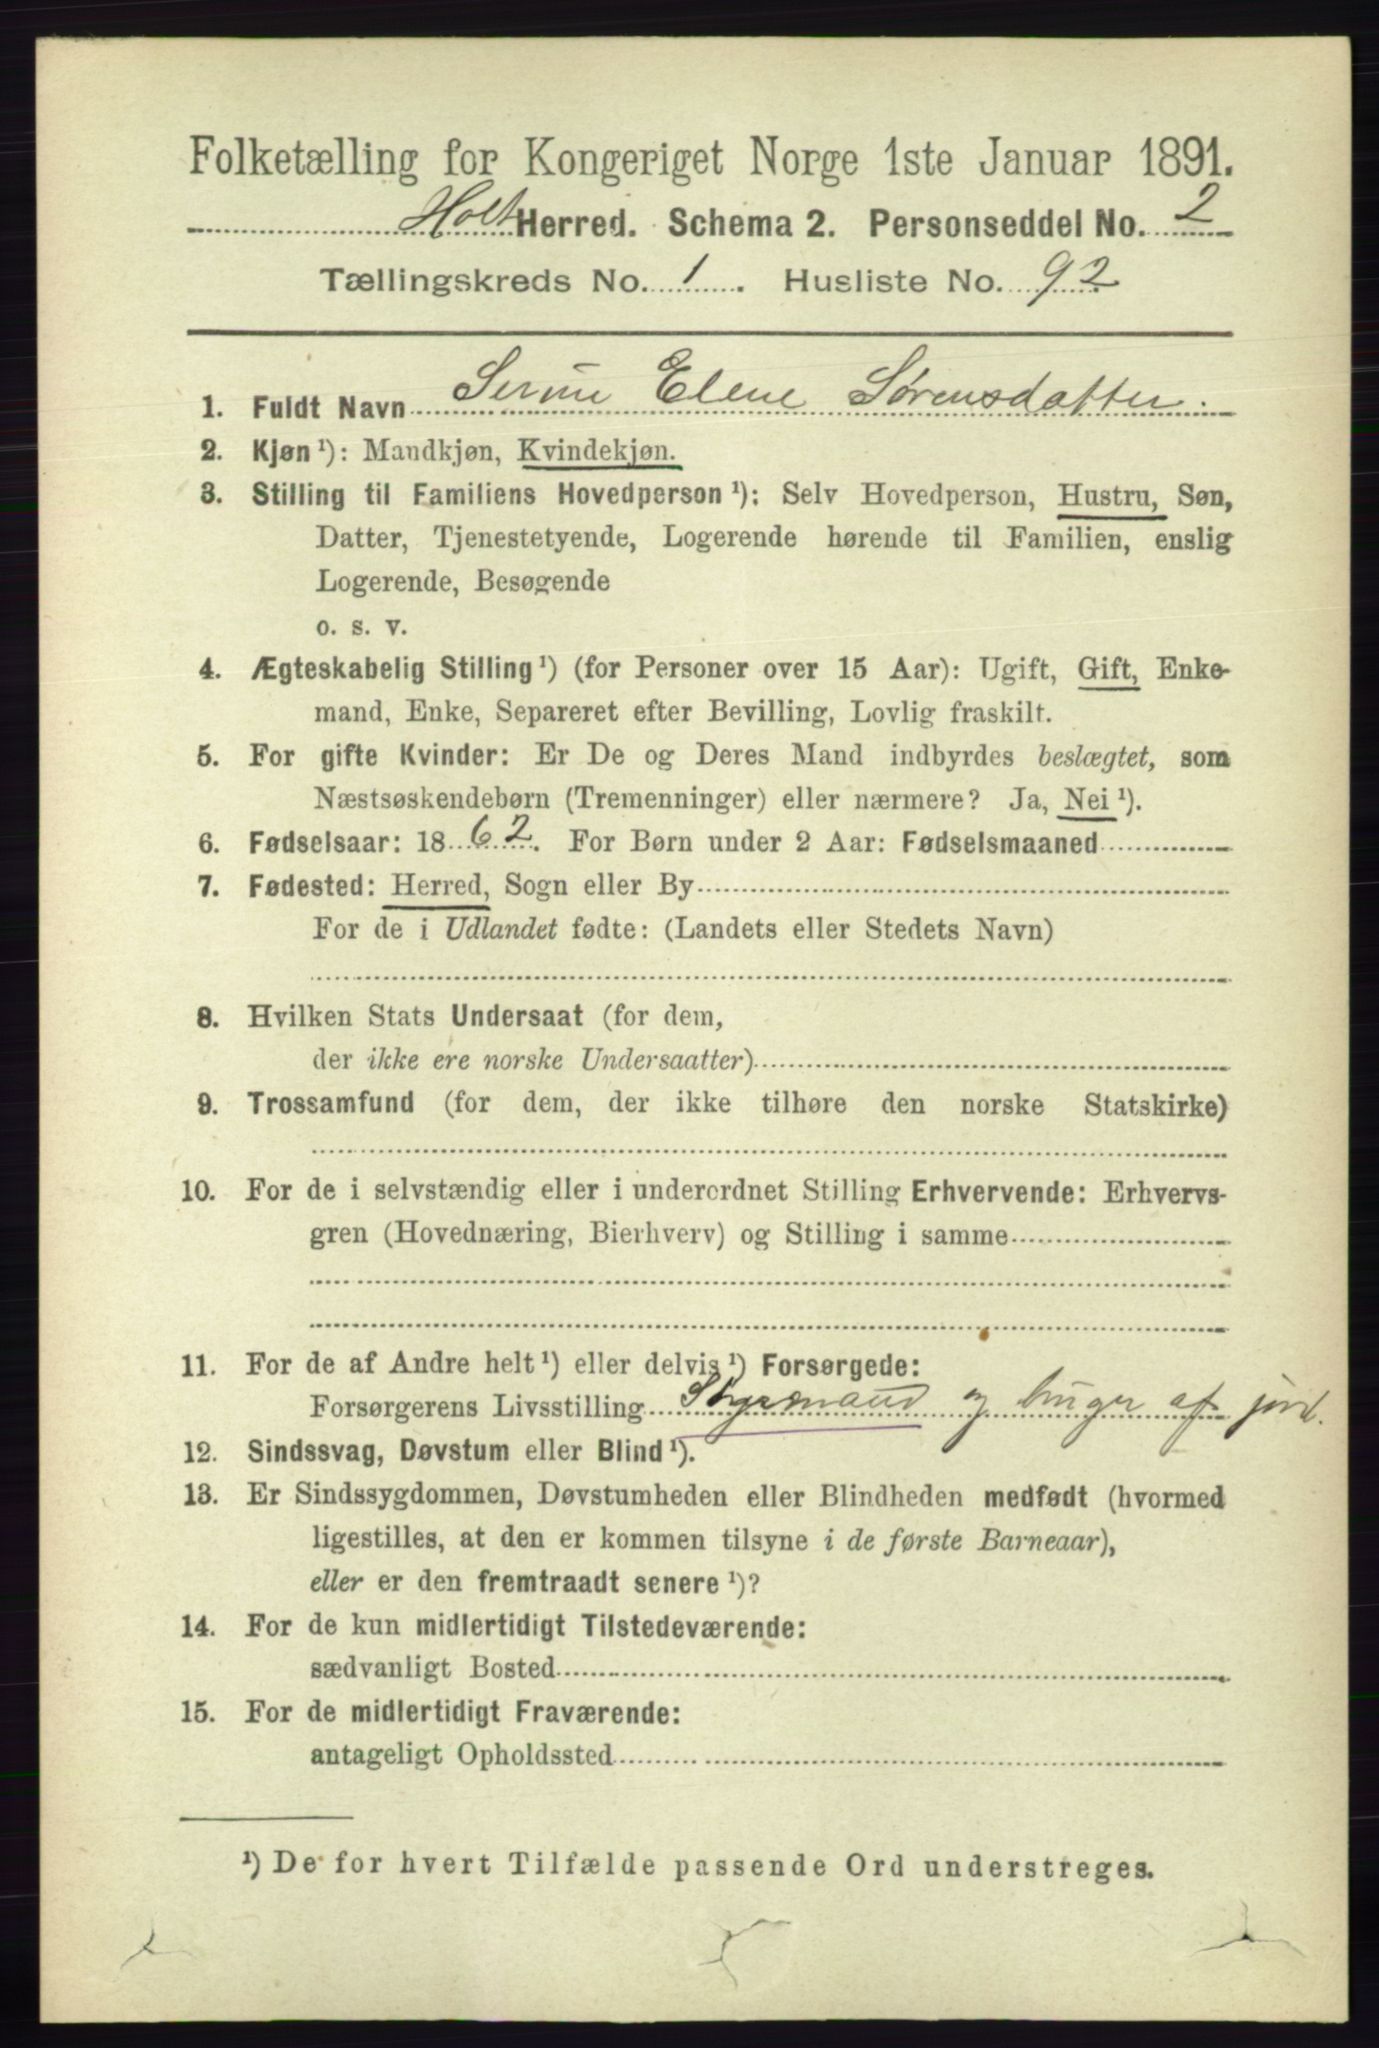 Folketælling for Kongeriget Norge 1ste Januar 1891.
Holt Herred. Schema 2. Personseddel No. 2
Tællingskreds No. 1. Husliste No. 92
1. Fuldt Navn Serine Elene Sørensdatter.
2. Kjøn ¹): Mandkjøn, Kvindekjøn.
3. Stilling til Familiens Hovedperson ¹): Selv Hovedperson, Hustru, Søn,
Datter, Tjenestetyende, Logerende hørende til Familien, enslig
Logerende, Besøgende
o. s. v.
4. Ægteskabelig Stilling ¹) (for Personer over 15 Aar): Ugift, Gift, Enke-
mand, Enke, Separeret efter Bevilling, Lovlig fraskilt.
5. For gifte Kvinder: Er De og Deres Mand indbyrdes beslægtet, som
Næstsøskendebørn (Tremenninger) eller nærmere? Ja, Nei ¹).
6. Fødselsaar: 1862. For Børn under 2 Aar: Fødselsmaaned
7. Fødested: Herred, Sogn eller By
For de i Udlandet fødte: (Landets eller Stedets Navn)
8. Hvilken Stats Undersaat (for dem,
der ikke ere norske Undersaatter)
9. Trossamfund (for dem, der ikke tilhøre den norske Statskirke)
10. For de i selvstændig eller i underordnet Stilling Erhvervende: Erhvervs-
gren (Hovednæring, Bierhverv) og Stilling i samme
11. For de af Andre helt ¹) eller delvis ¹) Forsørgede:
Forsørgerens Livsstilling Styrmand og bruger af jord.
12. Sindssvag, Døvstum eller Blind ¹).
13. Er Sindssygdommen, Døvstumheden eller Blindheden medfødt (hvormed
ligestilles, at den er kommen tilsyne i de første Barneaar),
eller er den fremtraadt senere ¹)?
14. For de kun midlertidigt Tilstedeværende:
sædvanligt Bosted
15. For de midlertidigt Fraværende:
antageligt Opholdssted
¹) De for hvert Tilfælde passende Ord understreges.